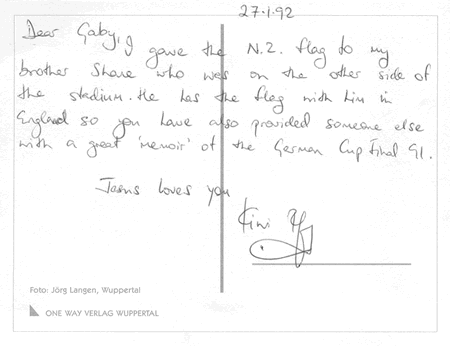 27.1.92
Dear Gaby, I gave the N.Z. flag to my
brother Shane who was on the other side of
the stadium. He has the flag with him in
England so you have also provided someone else
with a great 'memoir' of the German Cup Final 91.
Jesus loves you
Kiwi
Foto: Jörg Langen, Wuppertal
ONE WAY VERLAG WUPPERTAL